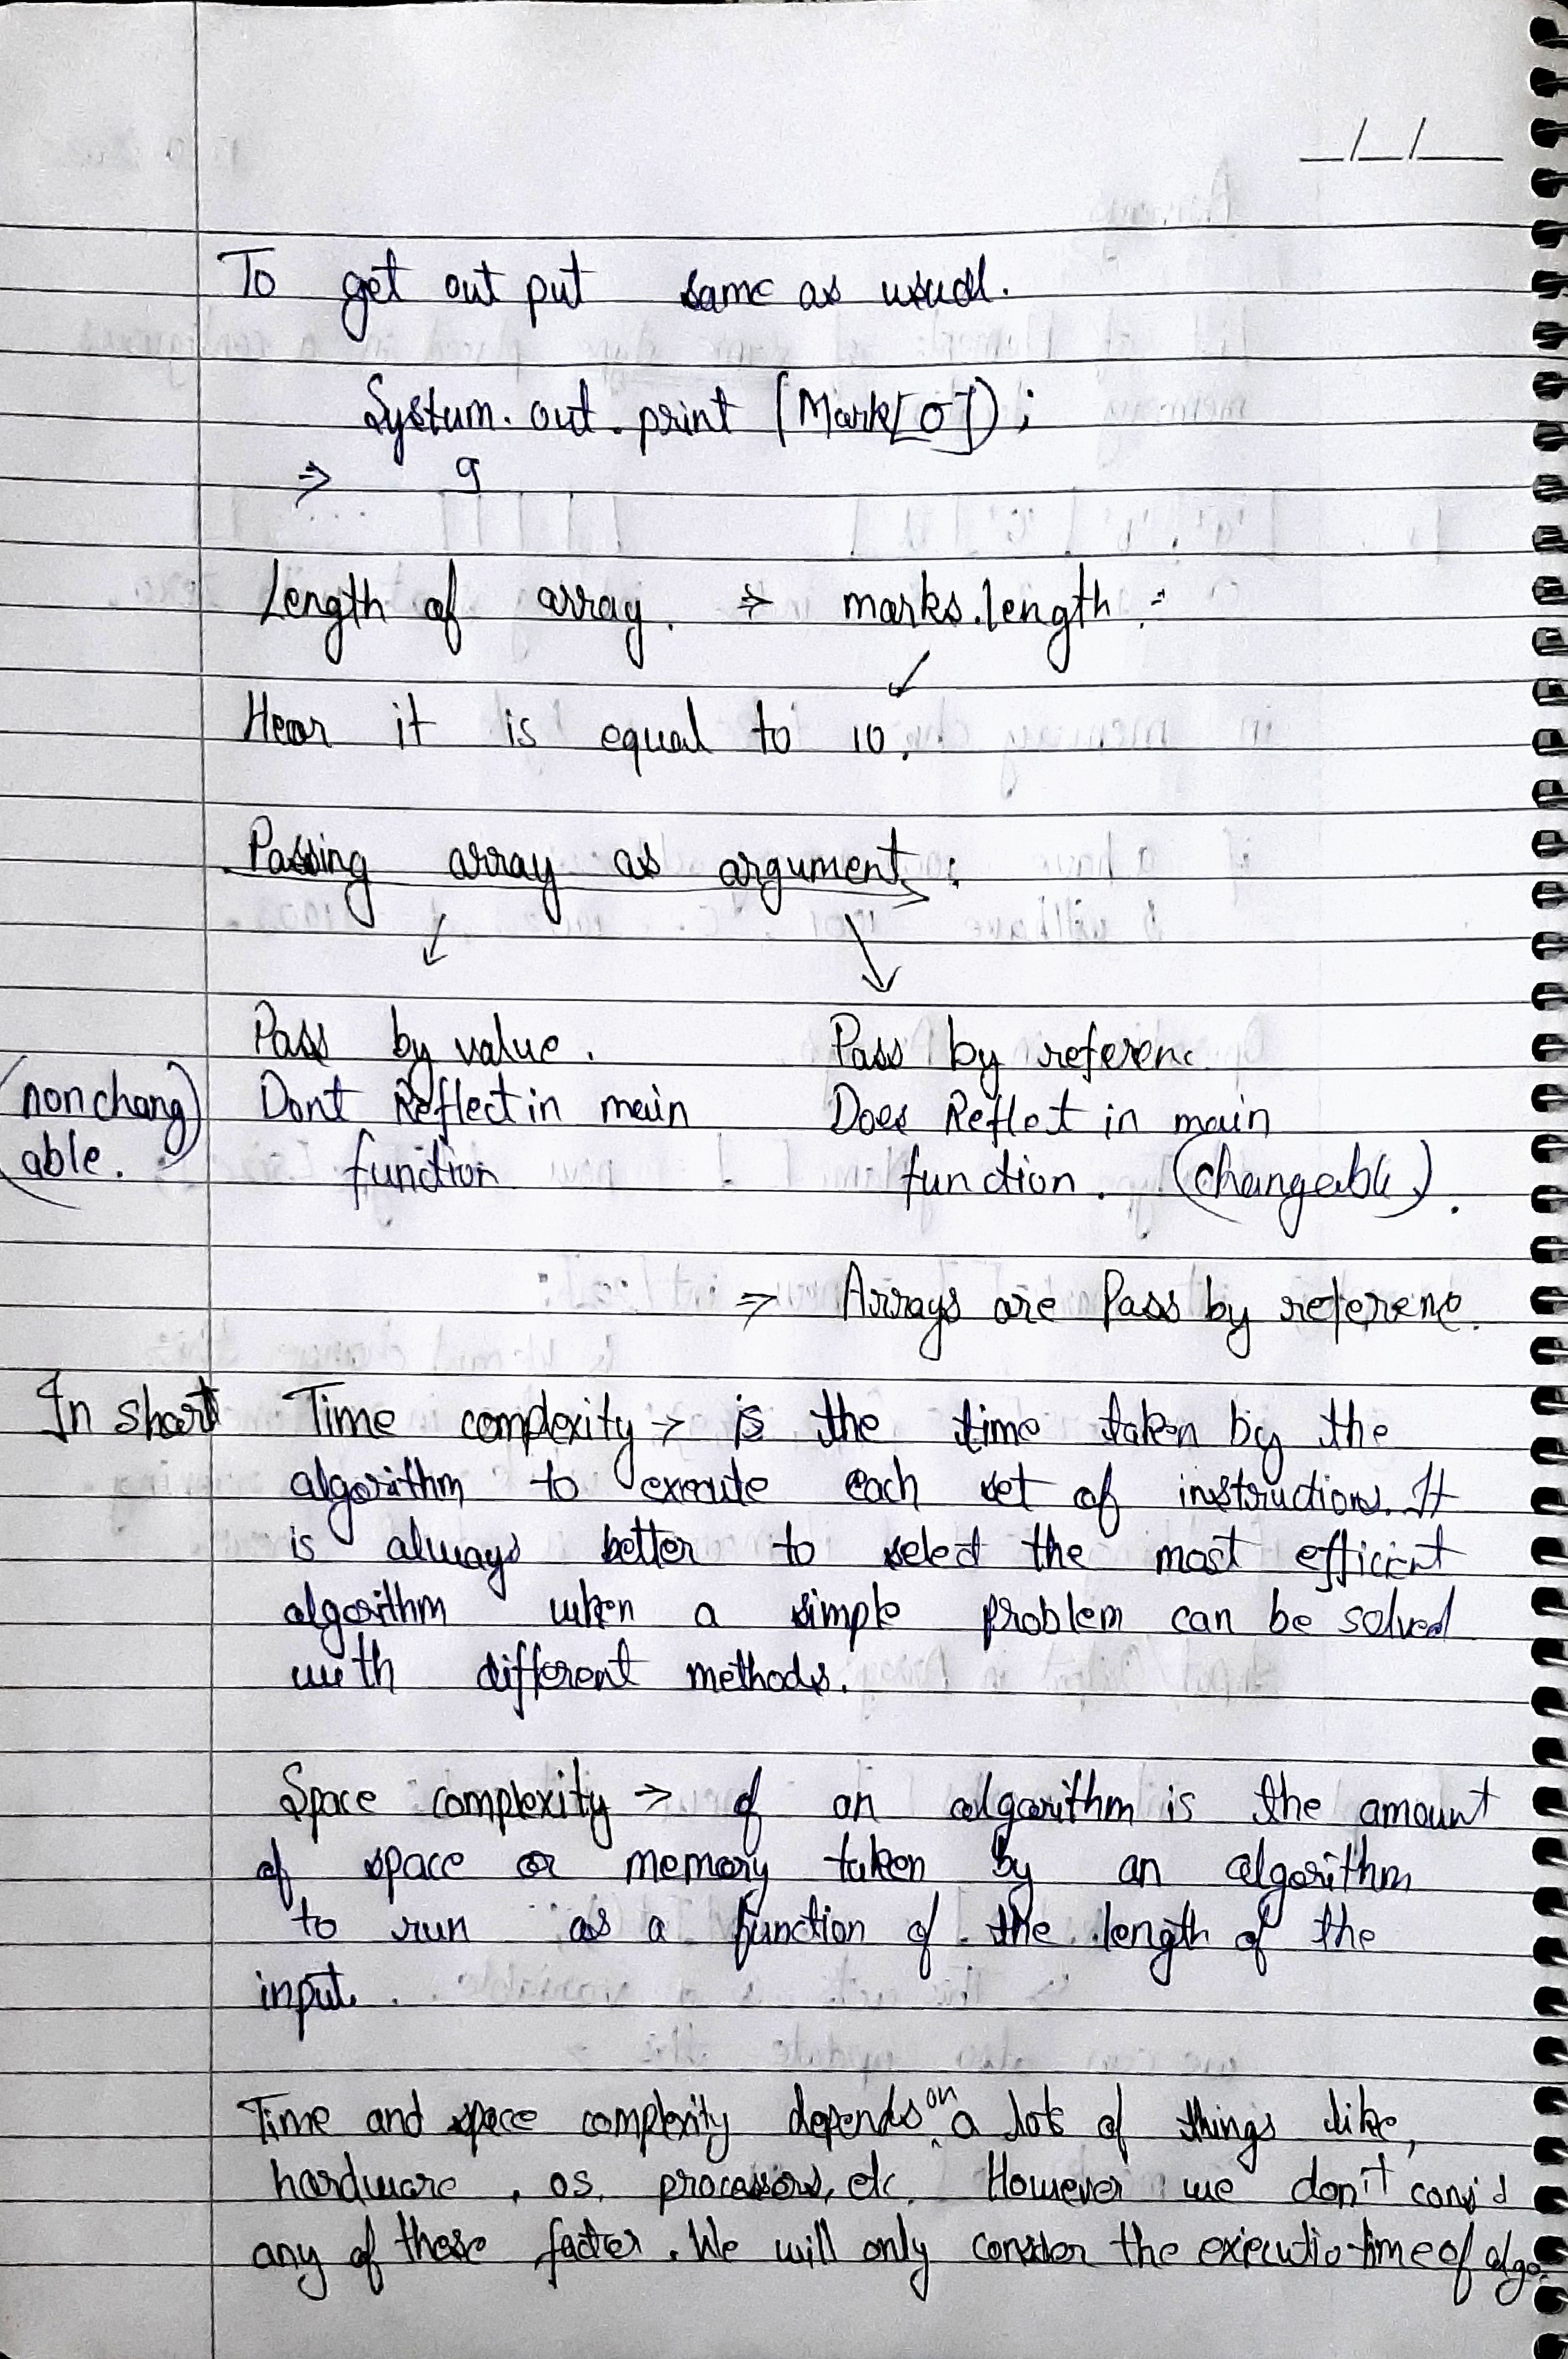 __/__/____
To get out put same as usual.
System.out.print (Mark[0]);
⇒ 9
Length of array. ⇒ marks.length :-
Hear it is equal to 10.
Passing array as argument :
Pass by value. Pass by referenc
(nonchang Dont Reflect in main Does Reflet in main
able.) function function. (changeable).
⇒ Arrays are Pass by reference.
In short Time complexity → is the time taken by the
algorithm to execute each set of instructions. It
is always better to select the most efficient
algorithm when a simple problem can be solved
with different methods.
Space complexity → of an algorithm is the amount
of space or memory taken by an algorithm
to run as a function of the length of the
input.
Time and space complexity depends on a lots of things like,
hardware, os, processors, etc. However we don't consid
any of these factor. We will only consider the executio time of algo.